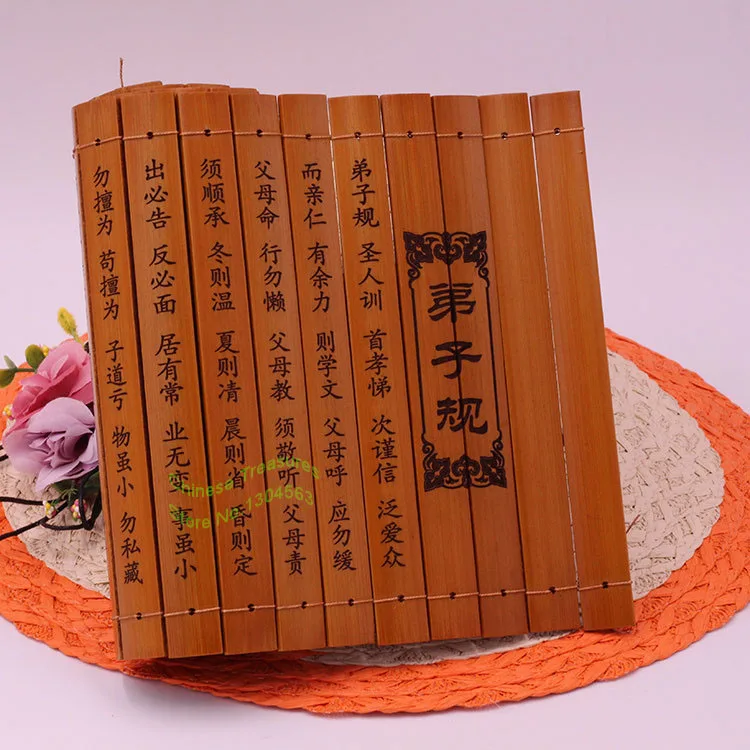 弟子规
弟子规 圣人训 首孝悌 次谨信 泛爱众
而亲仁 有余力 则学文 父母呼 应勿缓
父母命 行勿懒 父母教 须敬听 父母责
须顺承 冬则温 夏则凊 晨则省 昏则定
出必告 反必面 居有常 业无变 事虽小
勿擅为 苟擅为 子道亏 物虽小 勿私藏
Chinese Treasures
Store No.1304563